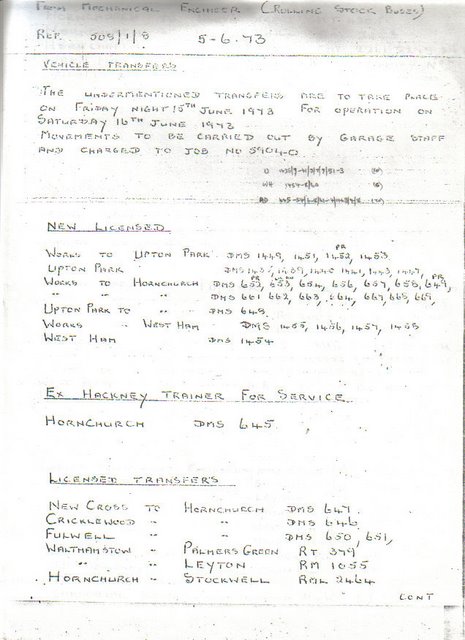 FROM MECHANICAL ENGINEER (ROLLING STOCK BUSES)
REF. 508/1/8 5-6-73
VEHICLE TRANSFERS
THE UNDERMENTIONED TRANSFERS ARE TO TAKE PLACE
ON FRIDAY NIGHT 15TH JUNE 1973 FOR OPERATION ON
SATURDAY 16TH JUNE 1973
MOVEMENTS TO BE CARRIED OUT BY GARAGE STAFF
AND CHARGED TO JOB NO 59040
NEW LICENSED
WORKS TO UPTON PARK DMS 1449, 1451, 1452, 1453
UPTON PARK DMS
WORKS TO HORNCHURCH DMS 652, 653, 654, 656, 657, 658, 649,
" " " DMS 661 662, 663, 664, 667, 668, 669,
UPTON PARK TO " DMS 648
WORKS " WEST HAM DMS 1455, 1456, 1457, 1458
WEST HAM DMS 1454
EX HACKNEY TRAINER FOR SERVICE
HORNCHURCH DMS 645
LICENSED TRANSFERS
NEW CROSS TO HORNCHURCH DMS 647
CRICKLEWOOD " " DMS 646
FULWELL " " DMS 650, 651,
WALTHAMSTOW " PALMERS GREEN RT 379
" " LEYTON RM 1055
HORNCHURCH " STOCKWELL RML 2464
CONT